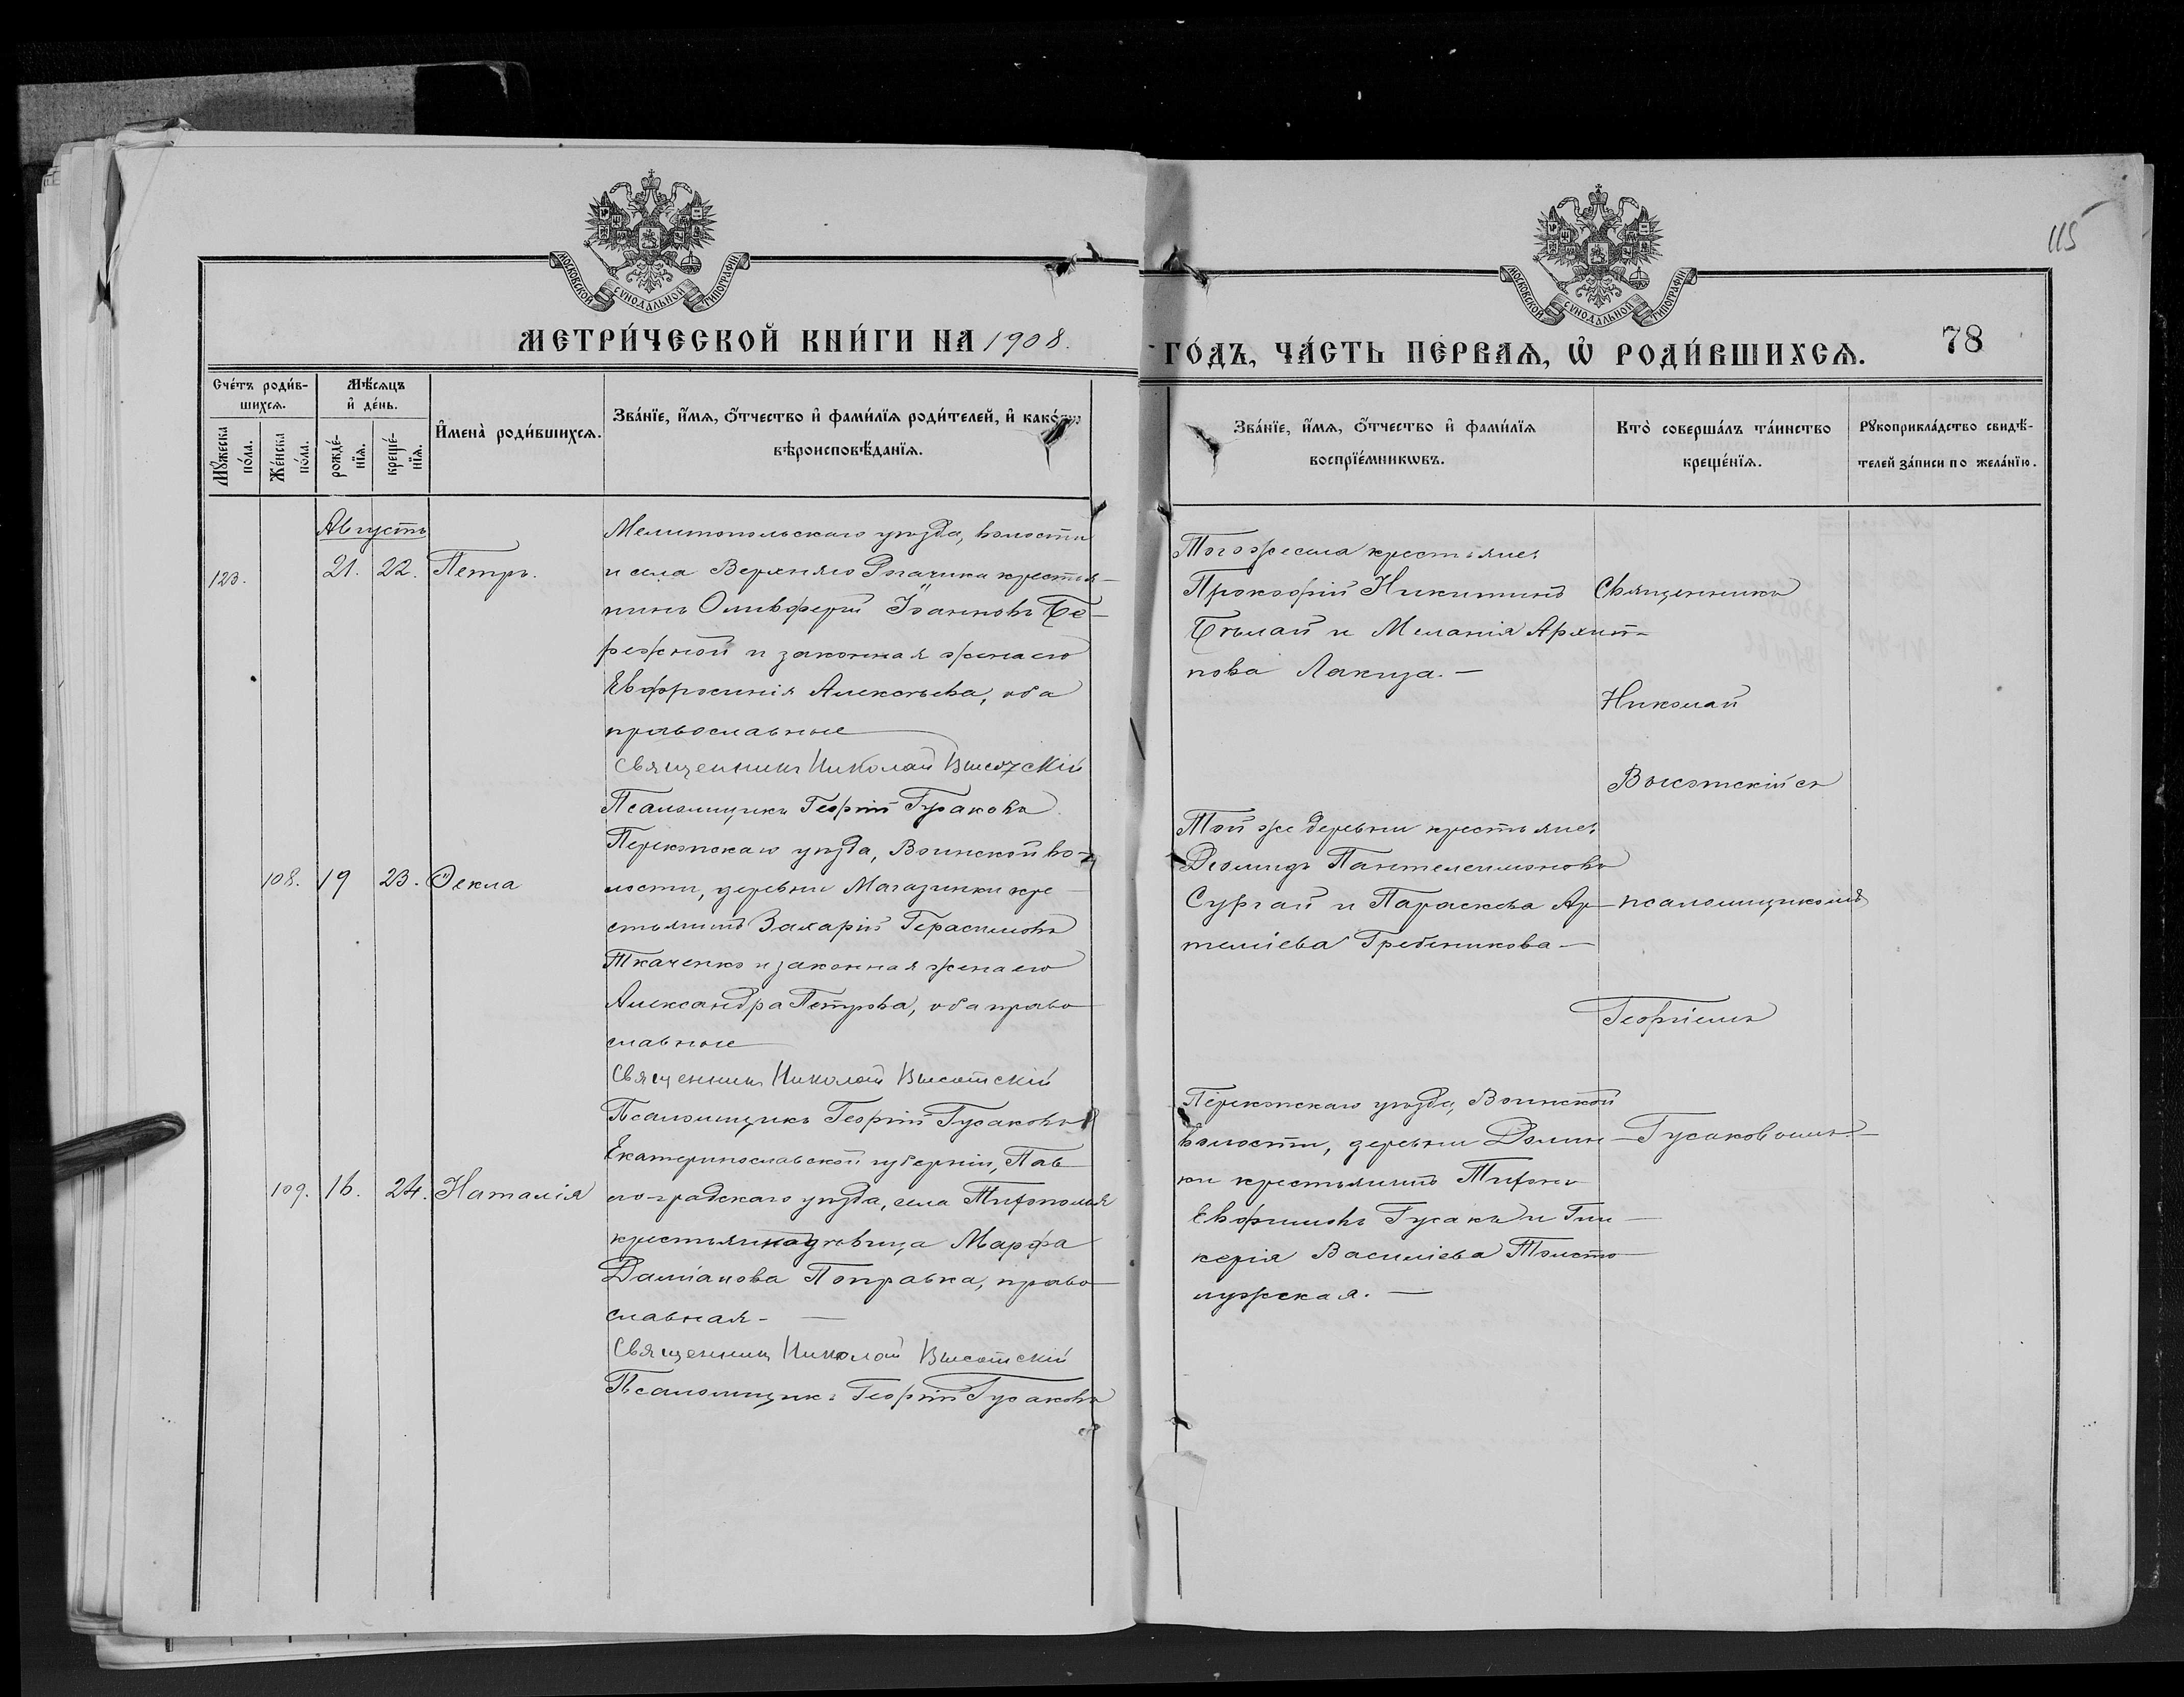 115
МОСКОВСКОЙ СУНОДАЛЬНОЙ ТИПОГРАФІИ
МОСКОВСКОЙ СУНОДАЛЬНОЙ ТИПОГРАФІИ
МЕТРИ́ЧЕСКОЙ КНИ́ГИ НА 1908.
ГО́ДЪ, ЧА́СТЬ ПЕ́РВАѦ, Ѡ҆ РОДИ́ВШИХСѦ.
78
Сче́тъ роди́в-
шихсѧ.
Мѣ́сѧцъ
и҆ де́нь.
Мꙋ́жеска
по́ла.
Же́нска
по́ла.
рожде́-
нїѧ.
креще́-
нїѧ.
И҆мена̀ роди́вшихсѧ.
Зва́нїе, и҆́мѧ, ѻ҆́тчество и҆ фами́лїѧ роди́телей, и҆ како́гѡ
вѣроисповѣ́данїѧ.
Зва́нїе, и҆́мѧ, ѻ҆́тчество и҆ фами́лїѧ
воспрїе́мникѡвъ.
Кто̀ соверша́лъ та́инство
креще́нїѧ.
Рꙋкоприкла́дство свидѣ́-
телей за́писи по жела́нїю.
Августъ
123.
21.
22.
Петръ.
Мелитопольскаго уѣзда, волости
и села Верхняго Рогачика крестья-
нинъ Оливферій Іоанновъ Бе-
режной и законная жена его
Евфросинія Алексѣева, оба
православные
Священникъ Николай Высотскій
Псаломщикъ Георгій Гусаковъ
Тогоже села крестьяне
Прокофій Никитинъ
Бѣлай и Меланія Архип-
пова Лакиза. —
Священникъ
Николай
Высотскій съ
108.
19
23.
Ѳекла
Перекопскаго уѣзда, Воинской во-
лости, деревни Магазинки кре-
стьянинъ Захарій Герасимовъ
Ткаченко и законная жена его
Александра Петрова, оба право
славные
Священникъ Николай Высотскій
Псаломщикъ Георгій Гусаковъ
Той же деревни крестьяне
Діомидъ Пантелеимоновъ
Сургай и Параскева Ар-
темиіева Гребеникова —
псаломщикомъ
Георгіемъ
109.
16.
24.
Наталія
Екатеринославской губерніи, Пав
лоградскаго уѣзда, села
крестьянка дѣвица Марфа
Даміанова Поправка, право
славная. —
Священникъ Николай Высотскій
Псаломщикъ Георгій Гусаковъ
Перекопскаго уѣзда, Воинской
волости, деревни Долин
ки крестьянинъ Тихонъ
Евфимовъ Гусакъ и Гли
керія Василіева Толсто
лужская. —
Гусаковымъ. —